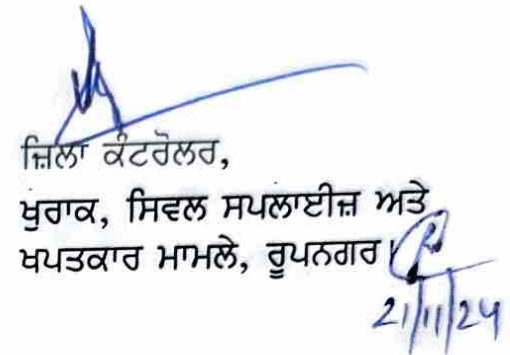 ਜ਼ਿਲਾ ਕੰਟਰੋਲਰ,
ਖੁਰਾਕ, ਸਿਵਲ ਸਪਲਾਈਜ਼ ਅਤੇ
ਖਪਤਕਾਰ ਮਾਮਲੇ, ਰੂਪਨਗਰ।
21/11/24